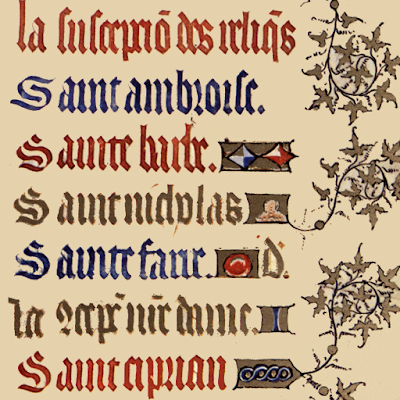 la suscepciō des reliq̄s
Saint ambroise.
Sainte barbe.
Saint nicolas
Sainte fare. d'.
la ꝯcepc̄ nr̄e dame.
Saint ciprian